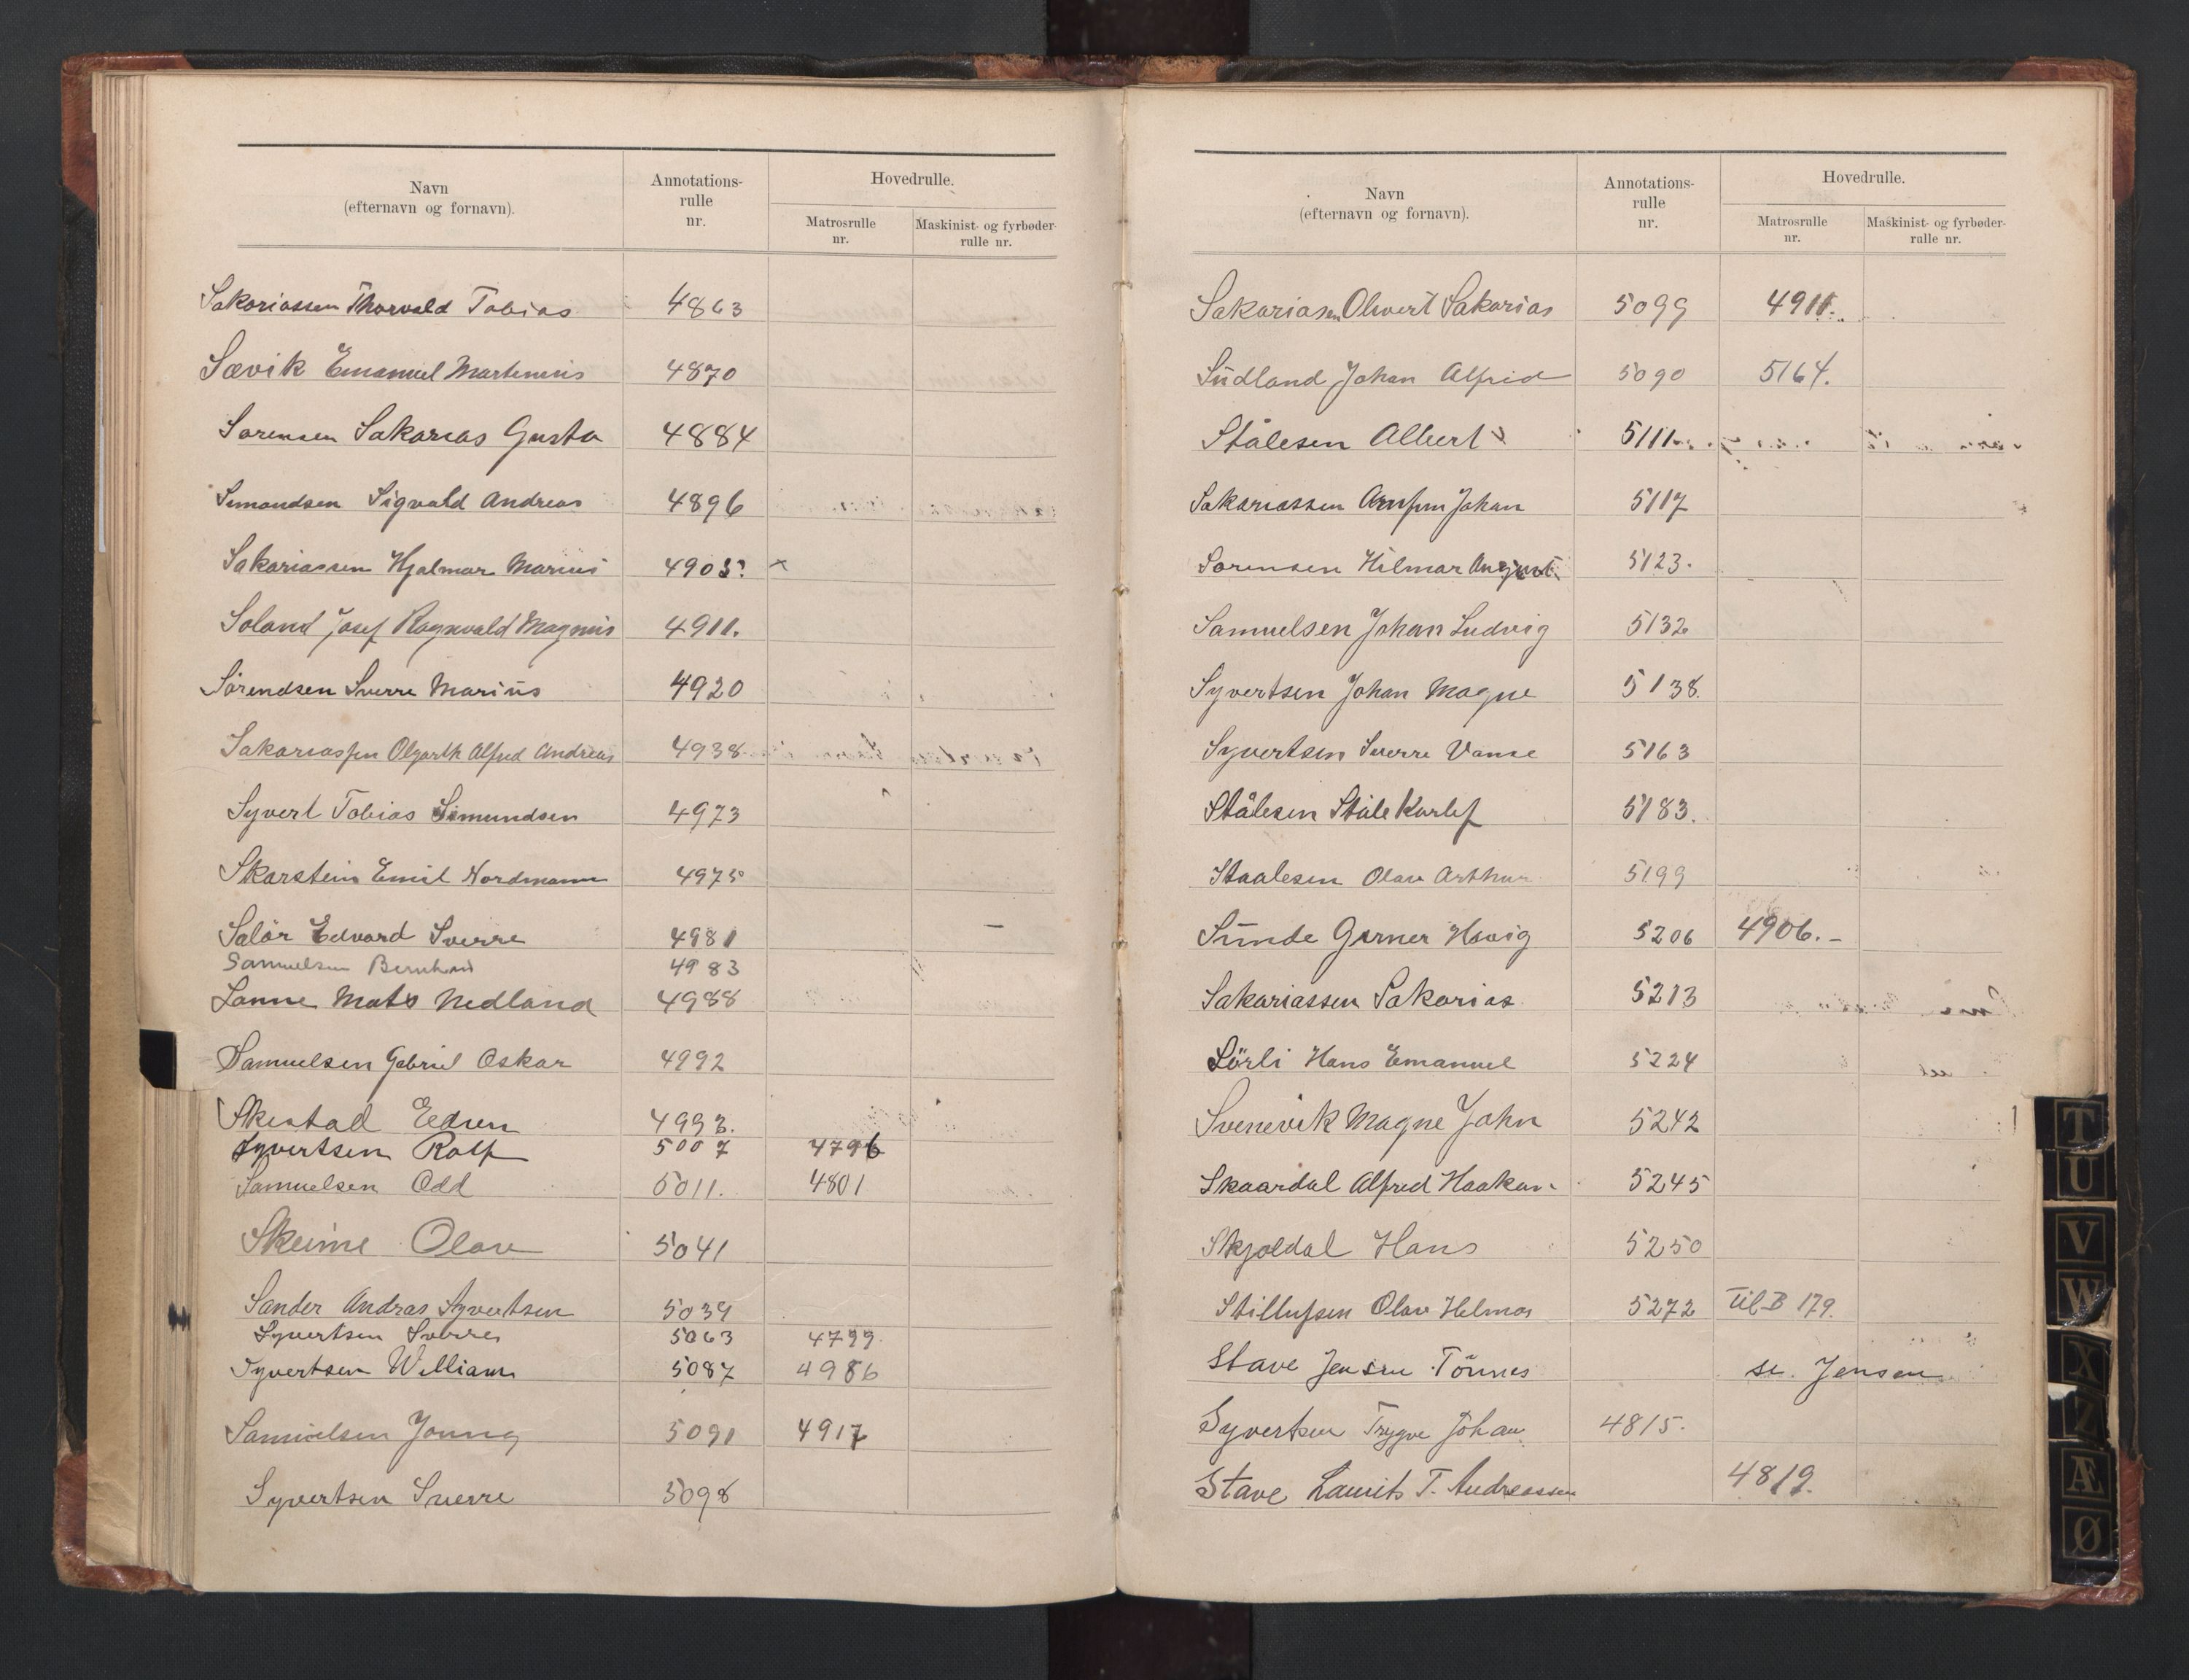 Navn
(efternavn og fornavn).
Annotations-
rulle
nr.
Hovedrulle.
Matrosrulle
nr.
Maskinist- og fyrbøder-
rulle nr.
Sakariassen Thorvald Tobias 4863
Sævik Emanuel Martenius 4870
Sørensen Sakarias Gusta 4884
Simondsen Sigvald Andreas 4896
Sakariassen Hjalmar Marius 4905. x
Soland Josef Ragnvald Magnus 4911.
Sørendsen Sverre Marius 4920
Sakariassen Olgarth Alfred Andreas 4938
Syvert Tobias Simundsen 4973
Skarstein Emil Nordmann 4975
Salör Edvard Sverre 4981 –
Samuelsen Bernhard 4983
Sanne Mats Nedland 4988
Samuelsen Gabriel Oskar 4992
Skistad Edvin 4993.
Syvertsen Rolf 5007 4796
Samuelsen Odd 5011. 4801
Skeime Olav 5041
Sander Andras Syvertsen 5039
Syvertsen Sverre 5063 4799.
Syvertsen William 5087 4986
Samuelsen Jonny 5091 4917
Syvertsen Sverre 5098
Navn
(efternavn og fornavn).
Annotations-
rulle
nr.
Hovedrulle.
Matrosrulle
nr.
Maskinist- og fyrbøder-
rulle nr.
Sakariasen Oluvert Sakarias 5099 4911.
Sudland Johan Alfred 5090 5164.
Stålesen Albert 5111
Sakariassen Arnfinn Johan 5117
Sørensen Hilmar August 5123.
Samuelsen Johan Ludvig 5132
Syvertsen Johan Magne 5138.
Syvertsen Sverre Vanse 5163
Stålesen Ståle Karlef 5183.
Staalesen Olav Arthur 5199
Sunde Gerner Hevig 5206 4906. –
Sakariassen Sakarias 5213
Sörli Hans Emanuel 5224
Svenevik Magne John 5242
Skaardal Alfred Haakon 5245
Skjoldal Hans 5250
Stillufsen Olav Helmar 5272 til B 179.
Stave Jensen Tönnes se Jensen
Syvertsen Trygve Johan 4815.
Stave Laurits T. Andreassen 4819.
T
U
V
W
X
Z
Æ
Ø